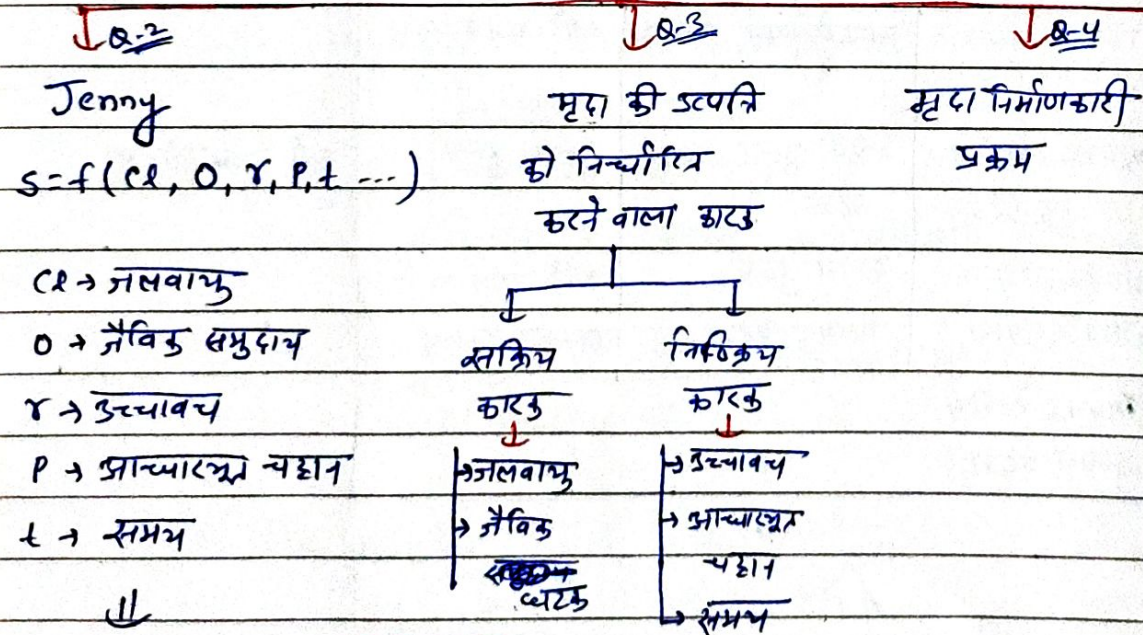 Q-2
Jenny
S=f(Cl, O, r, P, t ---)
Cl → जलवायु
O → जैविक समुदाय
r → उच्चावच
P → आधारभूत चट्टान
t → समय
Q-3
मृदा की उत्पत्ति
को निर्धारित
करने वाला कारक
सक्रिय
कारक
→ जलवायु
→ जैविक
घटक
निष्क्रिय
कारक
→ उच्चावच
→ आधारभूत
चट्टान
→ समय
Q-4
मृदा निर्माणकारी
प्रक्रम